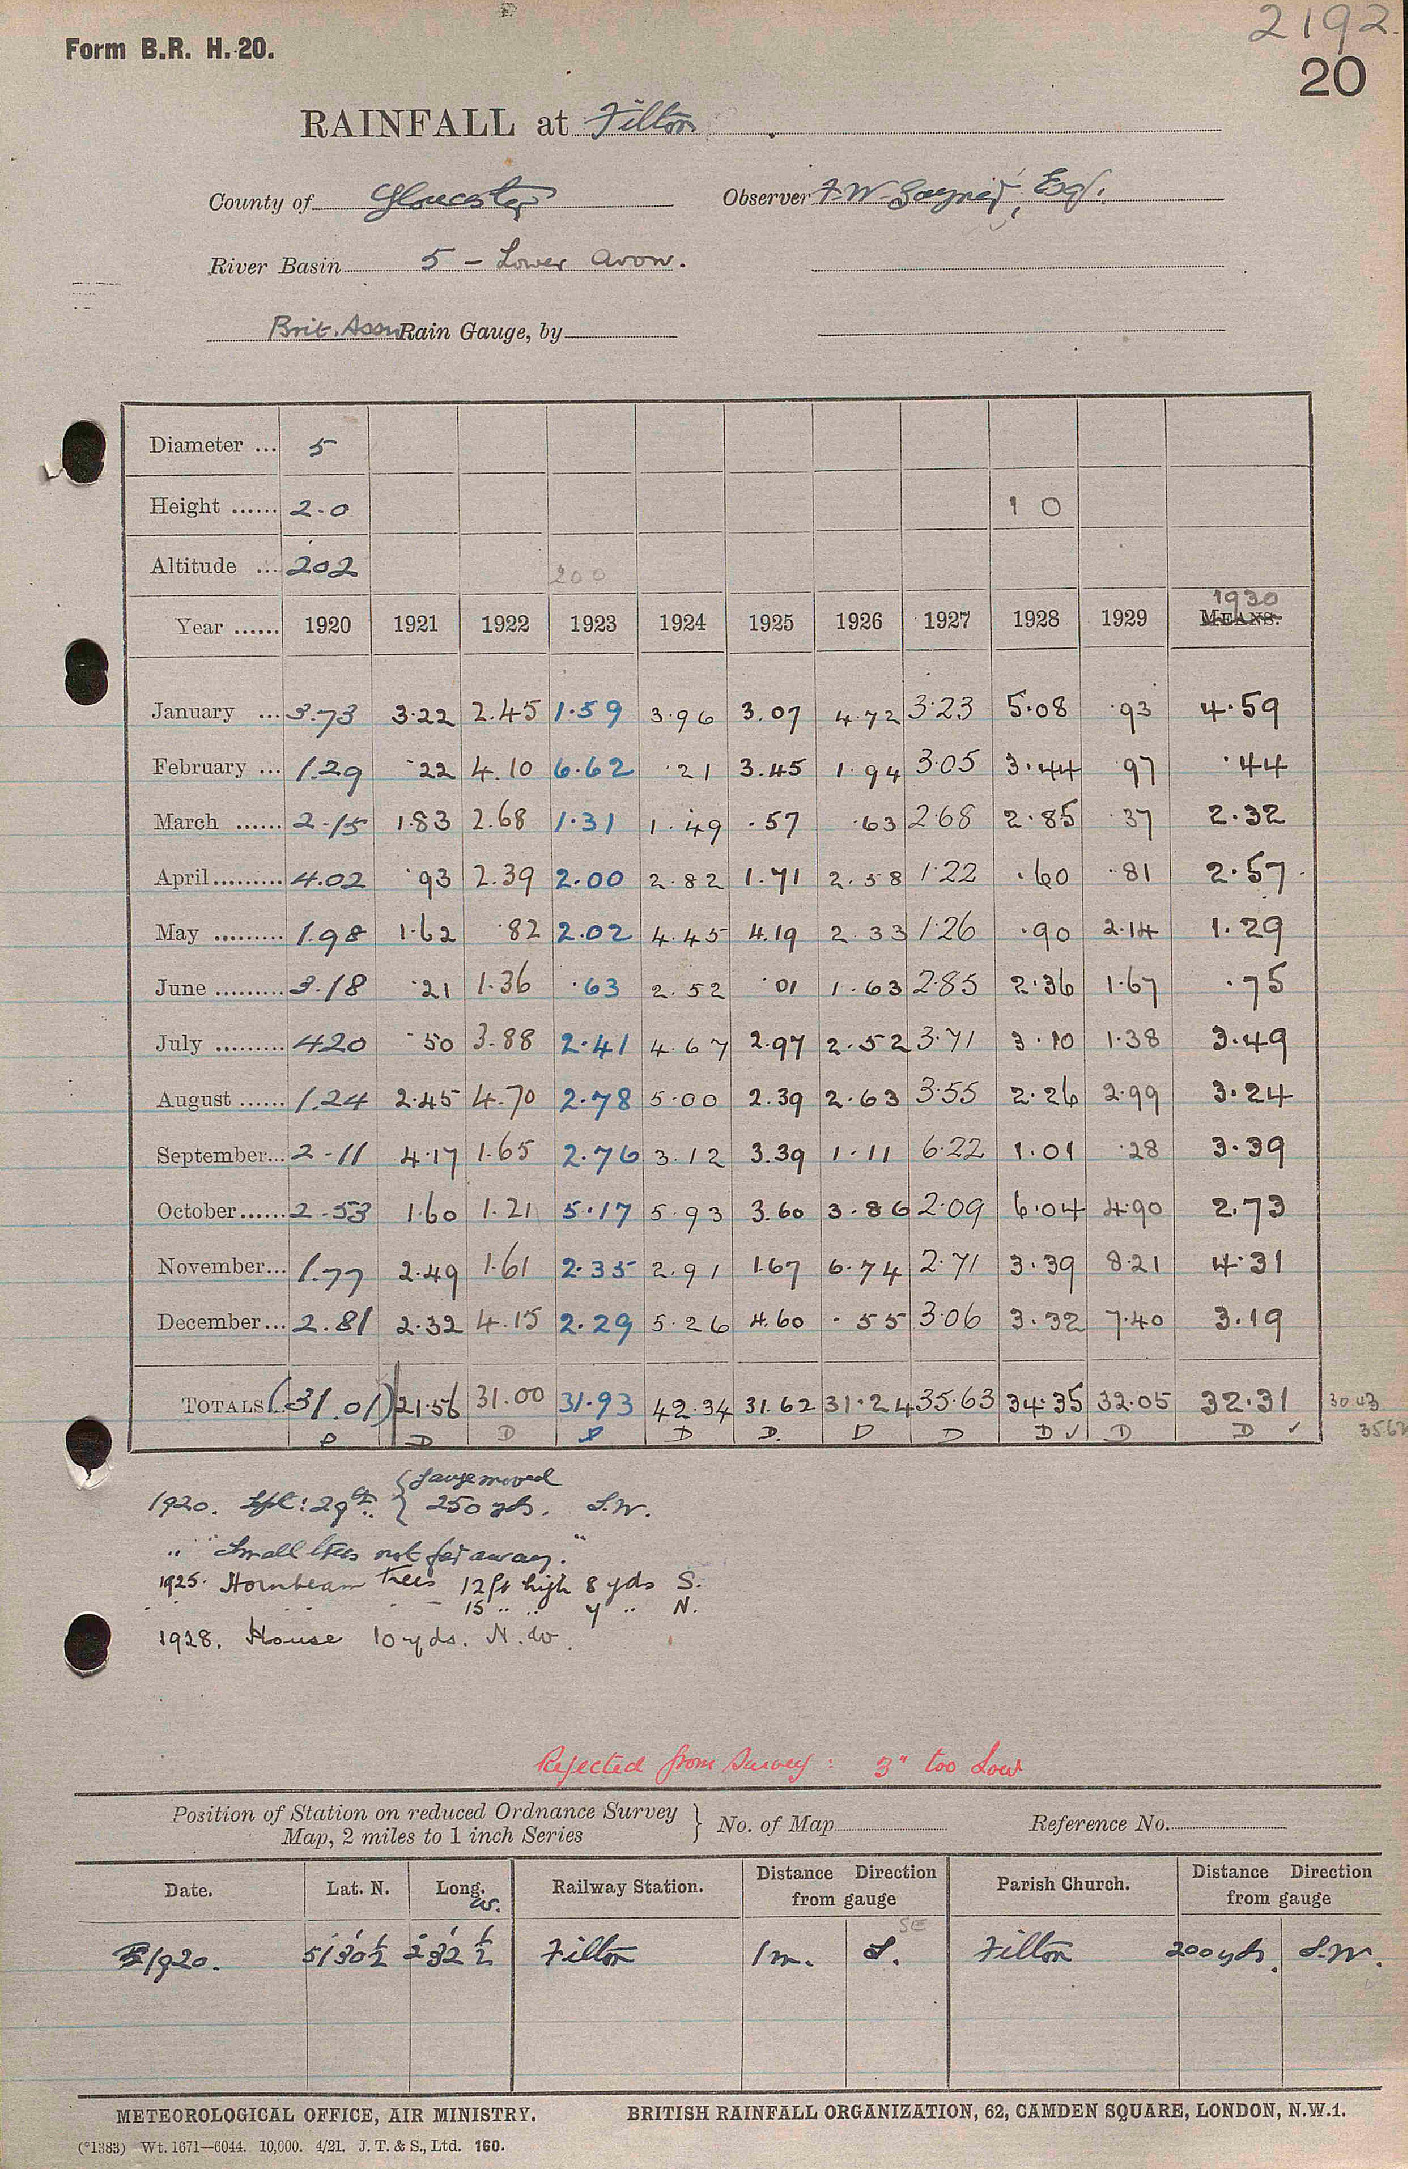 2192.
Form B.R. H. 20.
20
RAINFALL at Filton
County of Gloucester Observer F. W. Esq.
River Basin 5 - Lower Avon.
Brit. Assn Rain Gauge, by
Diameter ... 5
Height ...... 2-0 1 0
Altitude ... 202 200
1930
Year ...... 1920 1921 1922 1923 1924 1925 1926 1927 1928 1929 MEANS.
January ... 3.73 3.22 2.45 1.59 3.96 3.07 4.72 3.23 5.08 .93 4.59
February ... 1.29 .22 4.10 6.62 .21 3.45 1.94 3.05 3.44 .97 .44
March ...... 2.15 1.83 2.68 1.31 1.49 .57 .63 2.68 2.85 .37 2.32
April ......... 4.02 .93 2.39 2.00 2.82 1.71 2.58 1.22 .60 .81 2.57
May ......... 1.98 1.62 .82 2.02 4.45 4.19 2.33 1.26 .90 2.14 1.29
June ......... 3.18 .21 1.36 .63 2.52 .01 1.63 2.85 2.36 1.67 .75
July ......... 4.20 .50 3.88 2.41 4.67 2.97 2.52 3.71 3.10 1.38 3.49
August ...... 1.24 2.45 4.70 2.78 5.00 2.39 2.63 3.55 2.26 2.99 3.24
September... 2.11 4.17 1.65 2.76 3.12 3.39 1.11 6.22 1.01 .28 3.39
October...... 2.53 1.60 1.21 5.17 5.93 3.60 3.86 2.09 6.04 4.90 2.73
November... 1.77 2.49 1.61 2.35 2.91 1.67 6.74 2.71 3.39 8.21 4.31
December... 2.81 2.32 4.15 2.29 5.26 4.60 .55 3.06 3.32 7.40 3.19
TOTALS (31.01) 21.56 31.00 31.93 42.34 31.62 31.24 35.63 34.35 32.05 32.31 3043
D D D D D D D D D ✓ D D ✓ 3562
1920. Sept: 29th.. { Gauge moved
250 yds. S.W.
" "Small trees not far away."
1925. Hornbeam trees 12 ft high 8 yds S.
15 " " 4 " N.
1928. House 10 yds. N.W.
Rejected from Survey: 3" too low
Position of Station on reduced Ordnance Survey
Map, 2 miles to 1 inch Series } No. of Map Reference No.
Date. Lat. N. Long. W. Railway Station. Distance Direction from gauge Parish Church. Distance Direction from gauge
SE
1920. 51°30'½ 2°32'½ Filton 1 m. S. Filton 200 yds. S.W.
METEOROLOGICAL OFFICE, AIR MINISTRY. BRITISH RAINFALL ORGANIZATION, 62, CAMDEN SQUARE, LONDON, N.W.1.
(*1383) Wt. 1671—6044. 10,000. 4/21. J. T. & S., Ltd. 160.